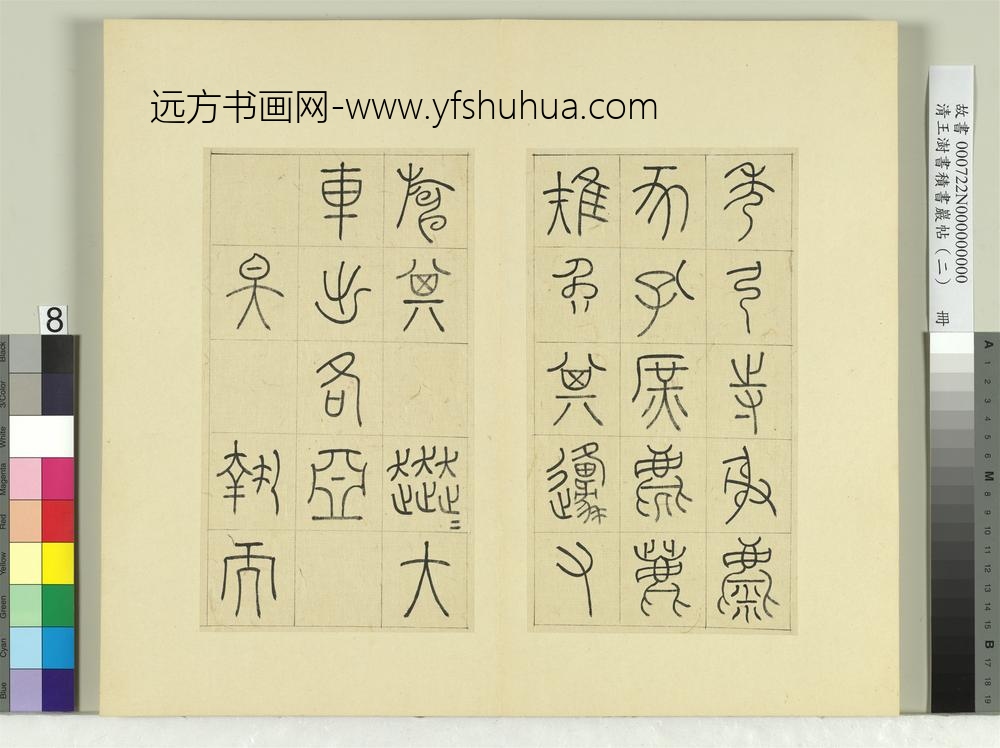 远方书画网-www.yfshuhua.com
秀弓寺射麋
豕孔庶麀鹿
雉兔其邍又
其大
車出各亞
昊執而
故書 000722N000000000
清王澍書積書巖帖(二) 冊
8
Black
3/Color
White
Magenta
Red
Yellow
Green
Cyan
Blue
A
1
2
3
4
5
6
M
8
9
10
11
12
13
14
15
B
17
18
19